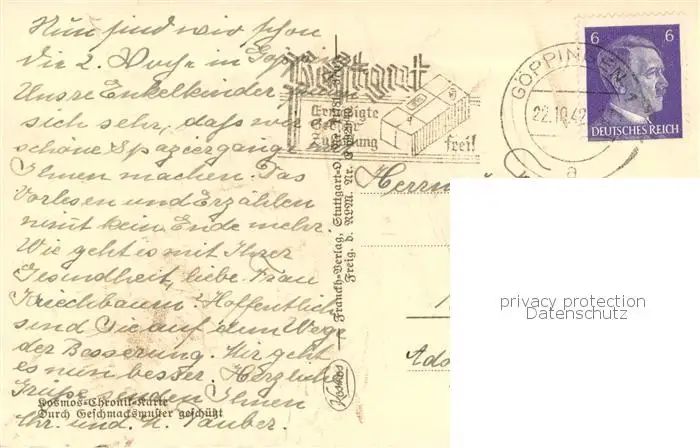 Nun sind wir schon
die 2. Woche in Göpp
Unsre Enkelkinder
sich sehr, daß wir
schöne Spaziergänge
Ihnen machen. Das
Vorlesen und Erzählen
nimt kein Ende mehr.
Wie geht es mit Ihrer
Gesundheit, liebe Frau
Kriechbaum? Hoffentlich
sind Sie auf dem Wege
der Besserung. Mir geht
es nun besser. Herzliche
Grüße senden Ihnen
Ihr. und. H. Tauber.
Kosmos-Chronik-Karte
Durch Geschmacksmuster geschützt
Postgut
Ermäßigte
Gebühr
Zustellung frei!
GÖPPINGEN 1
22.10.42
a
6 6
DEUTSCHES REICH
Franckh-Verlag, Stuttgart-O
Freig. d. RLM. Nr.
Kosmos
Herrn
Ado
privacy protection
Datenschutz